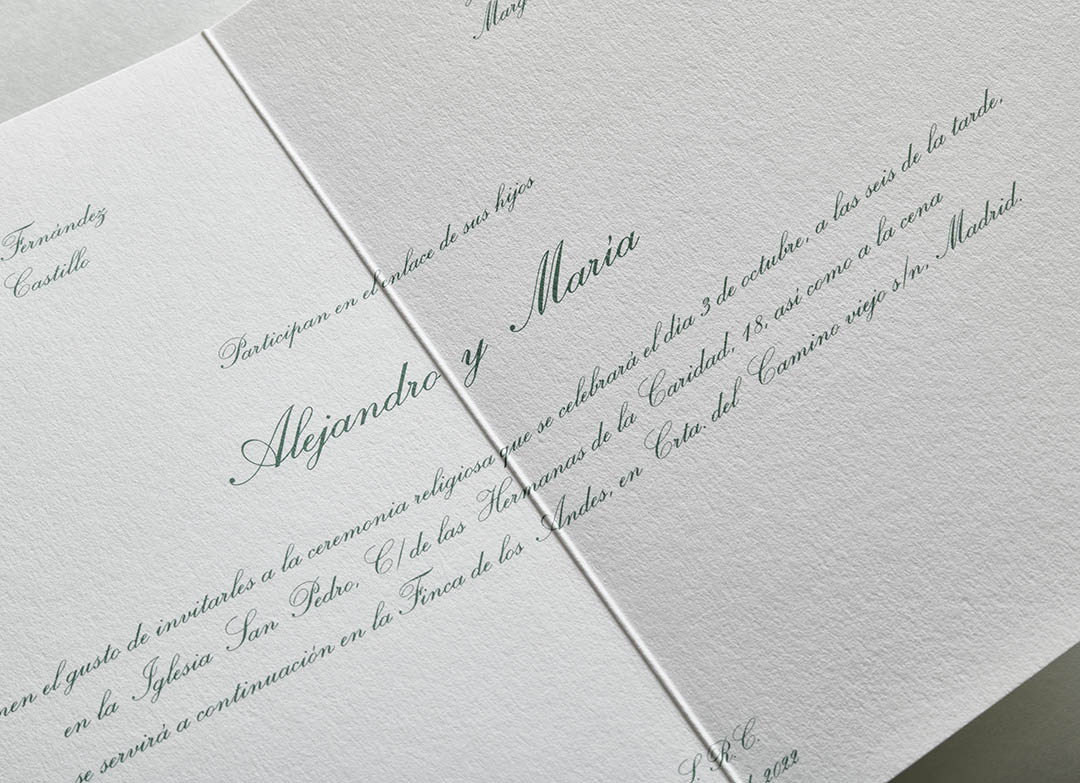 Fernández
Castillo
Participan en el enlace de sus hijos
Alejandro y María
el gusto de invitarles a la ceremonia religiosa que se celebrará el día 3 de octubre, a las seis de la tarde,
en la Iglesia San Pedro, C/ de las Hermanas de la Caridad, 18, así como a la cena
se servirá a continuación en la Finca de los Andes, en Crta. del Camino viejo s/n, Madrid.
S. R. C.
2022